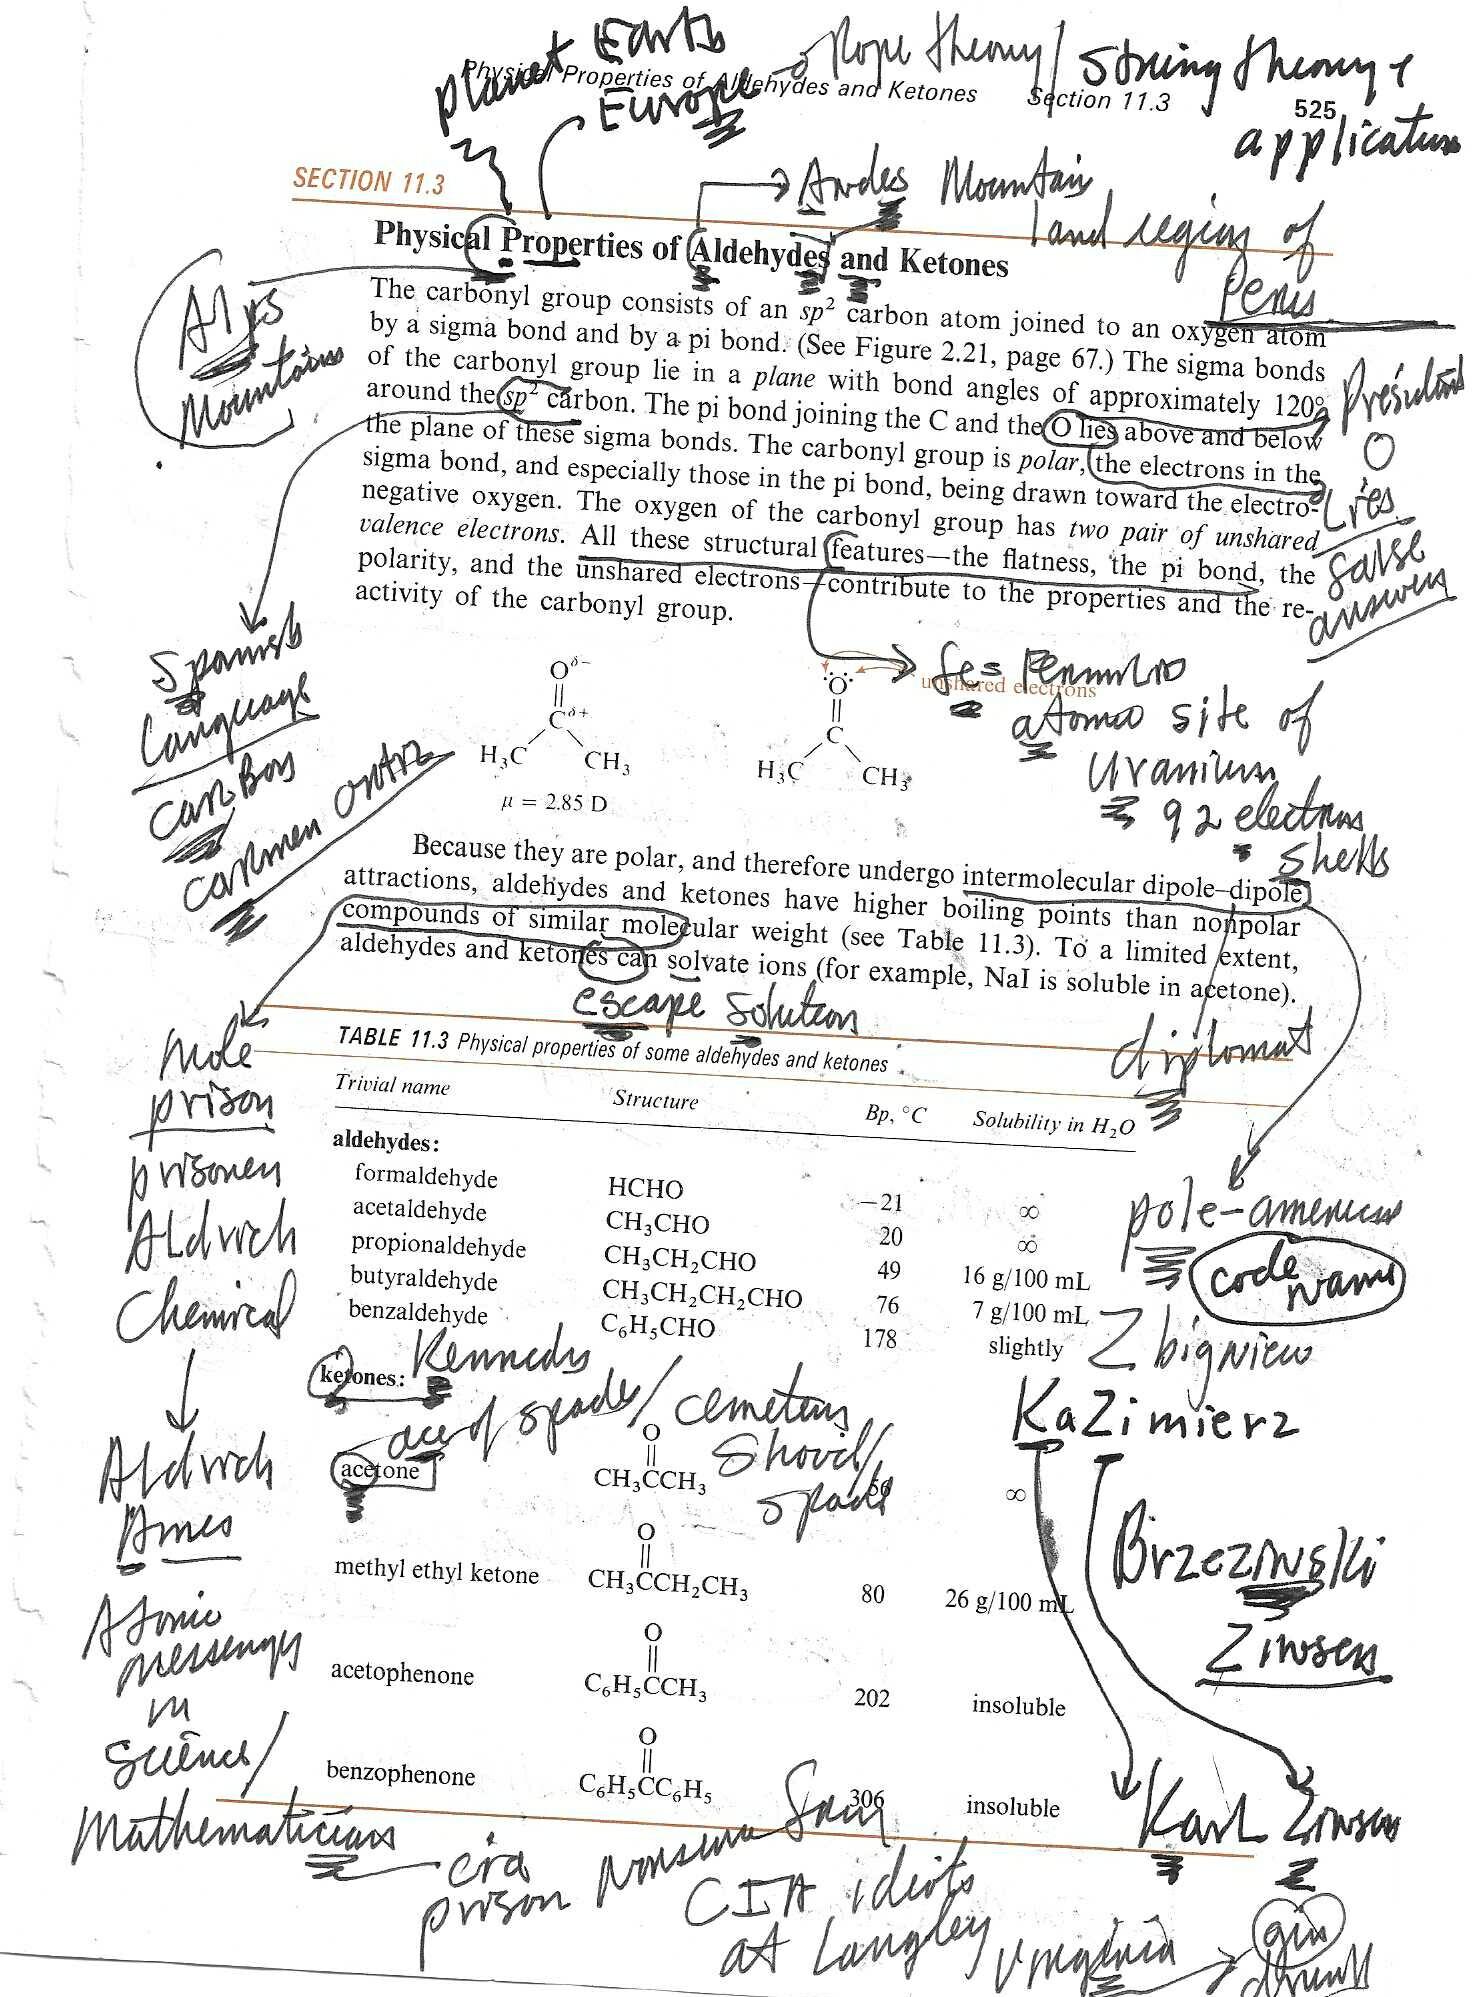 planet Earth
Europe → Rope theory / String theory +
application
Physical Properties of Aldehydes and Ketones Section 11.3
525
SECTION 11.3
Andes Mountain
land region of
Physical Properties of Aldehydes and Ketones
Alps
Mountains
The carbonyl group consists of an sp² carbon atom joined to an oxygen atom
by a sigma bond and by a pi bond. (See Figure 2.21, page 67.) The sigma bonds
of the carbonyl group lie in a plane with bond angles of approximately 120°
around the sp² carbon. The pi bond joining the C and the O lies above and below
the plane of these sigma bonds. The carbonyl group is polar, the electrons in the
sigma bond, and especially those in the pi bond, being drawn toward the electro-
negative oxygen. The oxygen of the carbonyl group has two pair of unshared
valence electrons. All these structural features—the flatness, the pi bond, the
polarity, and the unshared electrons—contribute to the properties and the re-
activity of the carbonyl group.
President
O
Lies
false
answers
Spanish
Language
Carbon
Carmen
O^δ−
C^δ+
H₃C CH₃
μ = 2.85 D
O
C
H₃C CH₃
unshared electrons
atomic site of
Uranium
92 electrons
shells
Because they are polar, and therefore undergo intermolecular dipole–dipole
attractions, aldehydes and ketones have higher boiling points than nonpolar
compounds of similar molecular weight (see Table 11.3). To a limited extent,
aldehydes and ketones can solvate ions (for example, NaI is soluble in acetone).
escape solution
diplomat
TABLE 11.3 Physical properties of some aldehydes and ketones
Trivial name Structure Bp, °C Solubility in H₂O
aldehydes:
formaldehyde HCHO −21 ∞
acetaldehyde CH₃CHO 20 ∞
propionaldehyde CH₃CH₂CHO 49 16 g/100 mL
butyraldehyde CH₃CH₂CH₂CHO 76 7 g/100 mL
benzaldehyde C₆H₅CHO 178 slightly
ketones:
acetone CH₃CCH₃ 56 ∞
O
methyl ethyl ketone CH₃CCH₂CH₃ 80 26 g/100 mL
O
acetophenone C₆H₅CCH₃ 202 insoluble
O
benzophenone C₆H₅CC₆H₅ 306 insoluble
O
Mole
prison
prisoner
Aldrich
Chemical
Aldrich
Ames
Atomic
messenger
in
science/
Mathematicians
Kennedys
ace of spades/ cemetery
Shovel/
spade
pole-american
code name
Zbigniew
Kazimierz
Brzezinski
Zinsen
Karl Zinsen
cia
prison
CIA idiots
at Langley
Virginia
gin
drunk